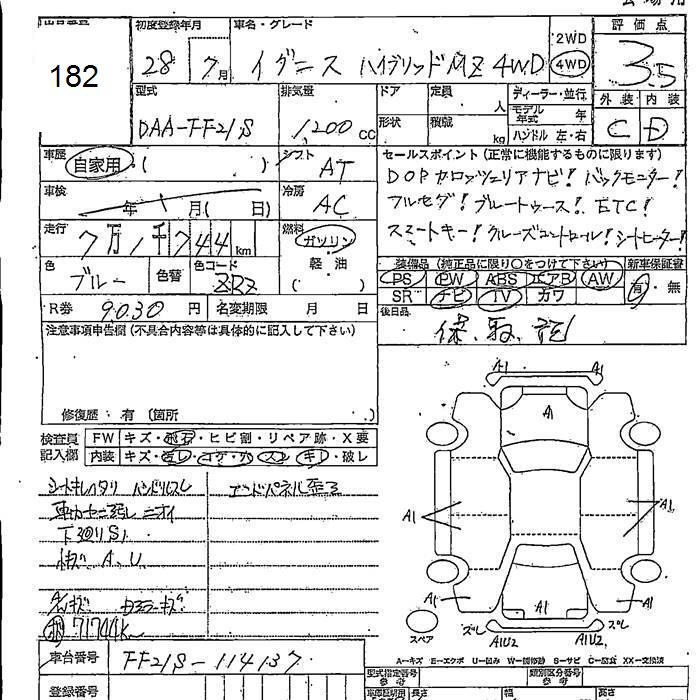 182
初度登録年月 車名・グレード 評価点
28 7月 イグニス ハイブリッドMZ 4WD 2WD 4WD 3.5
型式 排気量 ドア 定員 人 ディーラー・並行 外装 内装
DAA-FF21S 1,200 CC 形状 積載 kg モデル年式 年 ハンドル 左・右 C D
車歴 自家用・( ) シフト AT
セールスポイント(正常に機能するものに限ります)
DOPカロッツェリアナビ! バックモニター!
車検 年 月( 日) 冷房 AC
フルセグ! ブルートゥース! ETC!
走行 7万1千744km 燃料 ガソリン・軽油 ( )
スマートキー! クルーズコントロール! シートヒーター!
色 ブルー 色替 色コード
装備品(純正品に限り○をつけて下さい) 新車保証書
PS PW ABS エアB AW 有・無
SR ナビ TV カワ
R券 9030円 名変期限 月 日
後日品 保、取、記
注意事項申告欄(不具合内容等は具体的に記入して下さい)
修復歴:有(箇所 )
検査員記入欄 FW キズ・飛石・ヒビ割・リペア跡・X要
内装 キズ・汚レ・コゲ・穴・スレ・キレ・破レ
シートキレ ハンドルスレ エンドパネル歪ミ
ニオイ
下回りS1
A、U
A/Wキズ
71744K
車台番号 FF21S-114137
登録番号
A1 A1
A1
A1 A1
A1 A1 A1
ズレ ズレ
A1U2 A1U2
スペア
A-キズ E-エクボ U-凹み W-補修跡 S-サビ C-腐食 XX-交換済
型式指定番号 参考 類別区分番号 参考
長さ 幅 高さ